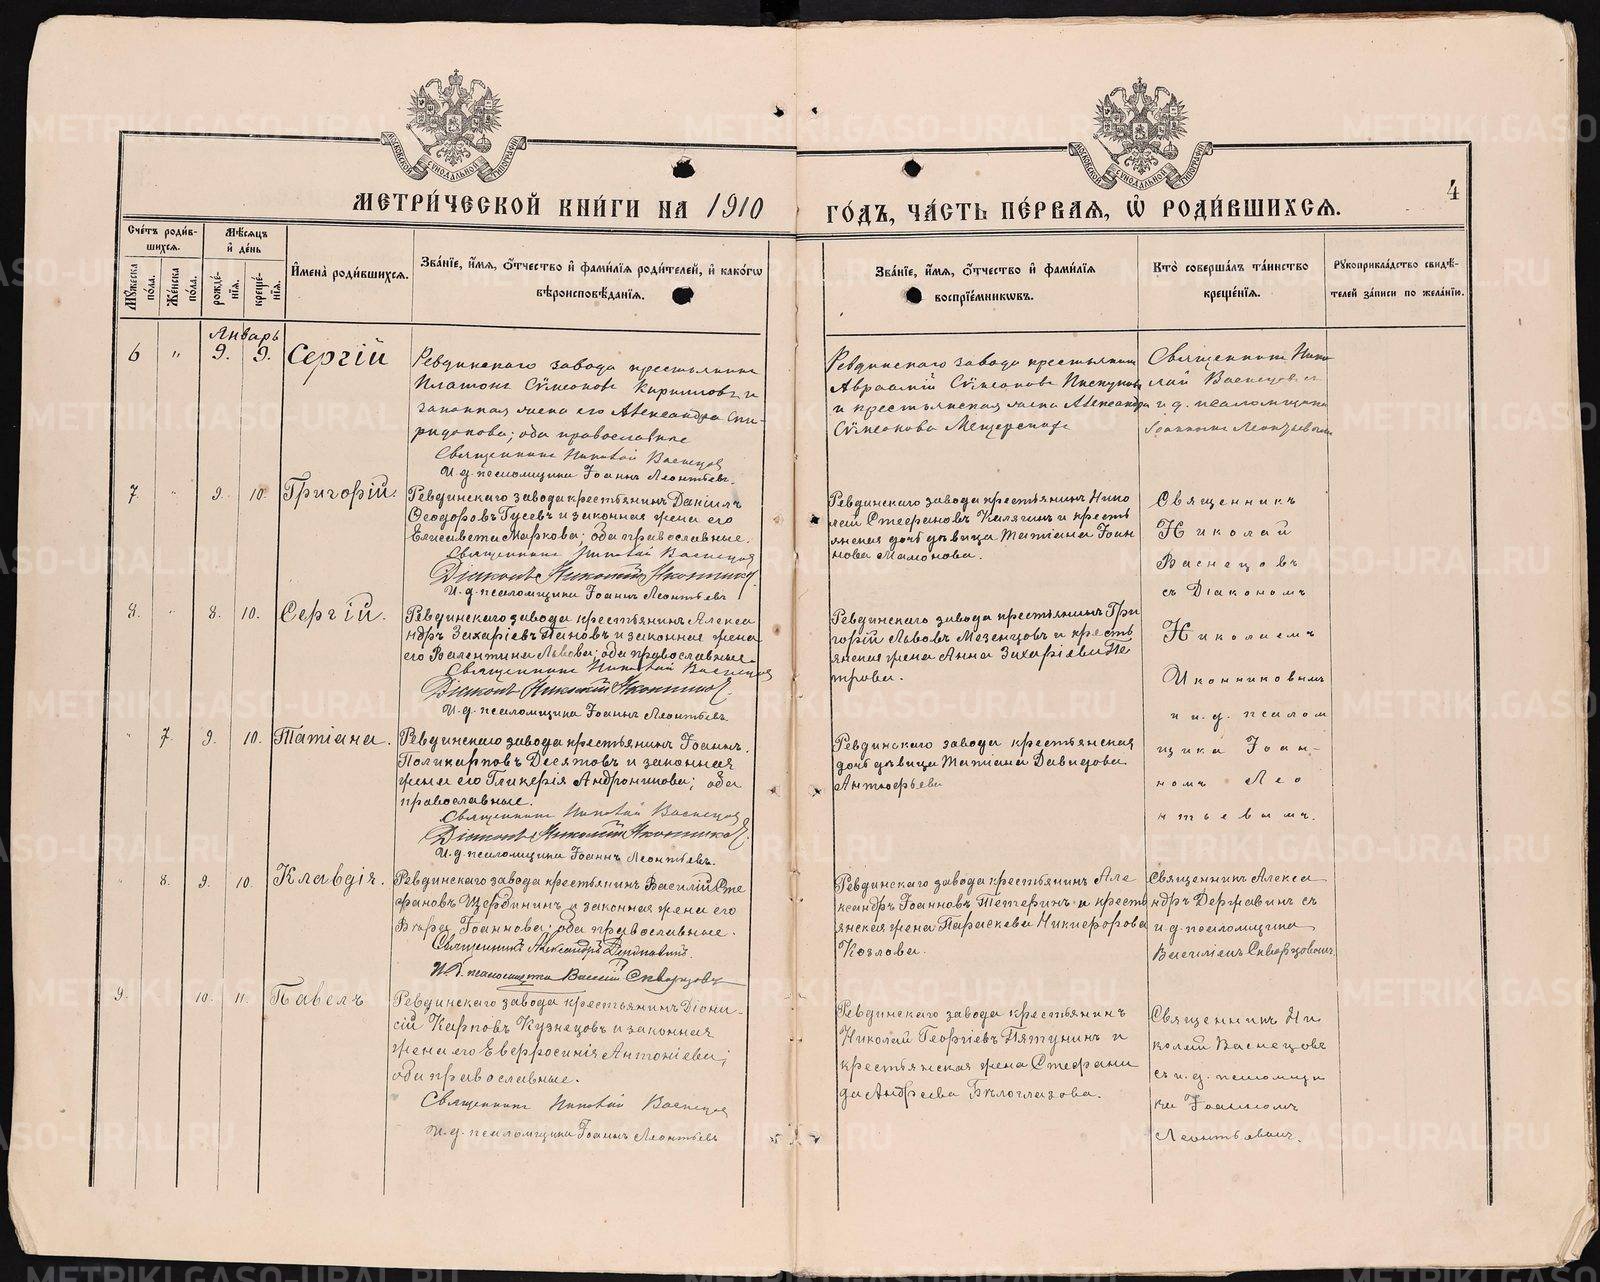 МЕТРИ́ЧЕСКОЙ КНИ́ГИ НА 1910
ГО́ДЪ, ЧА́СТЬ ПЕ́РВАЯ, Ѡ РОДИ́ВШИХСЯ.
4
Сче́тъ роди́вшихся.
Му́жеска по́ла.
Же́нска по́ла.
Мѣ́сяцъ и де́нь
рожде́нія.
креще́нія.
Имена̀ роди́вшихся.
Зва́ніе, и́мя, о́тчество и фами́лія роди́телей, и како́гѡ
вѣроисповѣ́данія.
Зва́ніе, и́мя, о́тчество и фами́лія
воспріе́мниковъ.
Кто̀ соверша́лъ та́инство
креще́нія.
Рукоприкла́дство свидѣ́-
телей за́писи по жела́нію.
Январь
6 " 9. 9. Сергій
Ревдинскаго завода крестьянинъ
Платонъ Сѵмеоновъ Кирилловъ и
законная жена его Александра Спи-
ридонова; оба православные
Священникъ Николай Васнецов
И. д. псаломщика Іоаннъ Леонтьевъ.
Ревдинскаго завода крестьянинъ
Авраамій Сѵмеоновъ Пискуновъ
и крестьянская жена Александра
Сѵмеонова Мещерскихъ
Священникъ Нико
лай Васнецовъ съ
и. д. псаломщика
Іоанномъ Леонтьевымъ
7. " 9. 10. Григорій.
Ревдинскаго завода крестьянинъ Даніилъ
Ѳеодоровъ Гусевъ и законная жена его
Елисавета Маркова; оба православные.
Священникъ Николай Васнецов
Діаконъ Николай Иконников
И. д. псаломщика Іоаннъ Леонтьевъ
Ревдинскаго завода крестьянинъ Нико
лай Стефановъ Калягинъ и кресть
янская дочь дѣвица Татіана Іоан
нова Мамонова.
Священникъ
Николай
Васнецовъ
съ Діакономъ
Николаемъ
Иконниковымъ
и и. д. псалом
щика Іоан-
номъ Лео
нтьевымъ.
8. " 8. 10. Сергій.
Ревдинскаго завода крестьянинъ Алекса
ндръ Захаріевъ Пановъ и законная жена
его Валентина Львова; оба православные.
Священникъ Николай Васнецов
Діаконъ Николай Иконников.
И. д. псаломщика Іоаннъ Леонтьевъ.
Ревдинскаго завода крестьянинъ Гри
горій Львовъ Мезенцовъ и кресть
янская жена Анна Захаріева Пе
трова.
" 7. 9. 10. Татіана.
Ревдинскаго завода крестьянинъ Іоаннъ
Поликарповъ Десятовъ и законная
жена его Гликерія Андроникова; оба
православные.
Священникъ Николай Васнецов
Діаконъ Николай Иконников
И. д. псаломщика Іоаннъ Леонтьевъ.
Ревдинскаго завода крестьянская
дочь дѣвица Татіана Давидова
Антюфьева
" 8. 9. 10. Клавдія.
Ревдинскаго завода крестьянинъ Василій Сте
фановъ Щербининъ и законная жена его
Вѣра Іоаннова; оба православные.
Священникъ Александръ Державинъ.
И. д. псаломщика Василій Скворцовъ
Ревдинскаго завода крестьянинъ Але
ксандръ Іоанновъ Тетеринъ и кресть
янская жена Параскева Никифорова
Козлова.
Священникъ Алекса
ндръ Державинъ съ
и. д. псаломщика
Василіемъ Скворцовымъ.
9. 10. 11. Павелъ
Ревдинскаго завода крестьянинъ Діони-
сій Карповъ Кузнецовъ и законная
жена его Евфросинія Антоніева;
оба православные.
Священникъ Николай Васнецов
И. д. псаломщика Іоаннъ Леонтьевъ
Ревдинскаго завода крестьянинъ
Николай Георгіевъ Пятунинъ и
крестьянская жена Стефани
да Андреева Бѣлоглазова.
Священникъ Ни
колай Васнецовъ
съ и. д. псаломщи
ка Іоанномъ
Леонтьевымъ.
METRIKI.GASO-URAL.RU